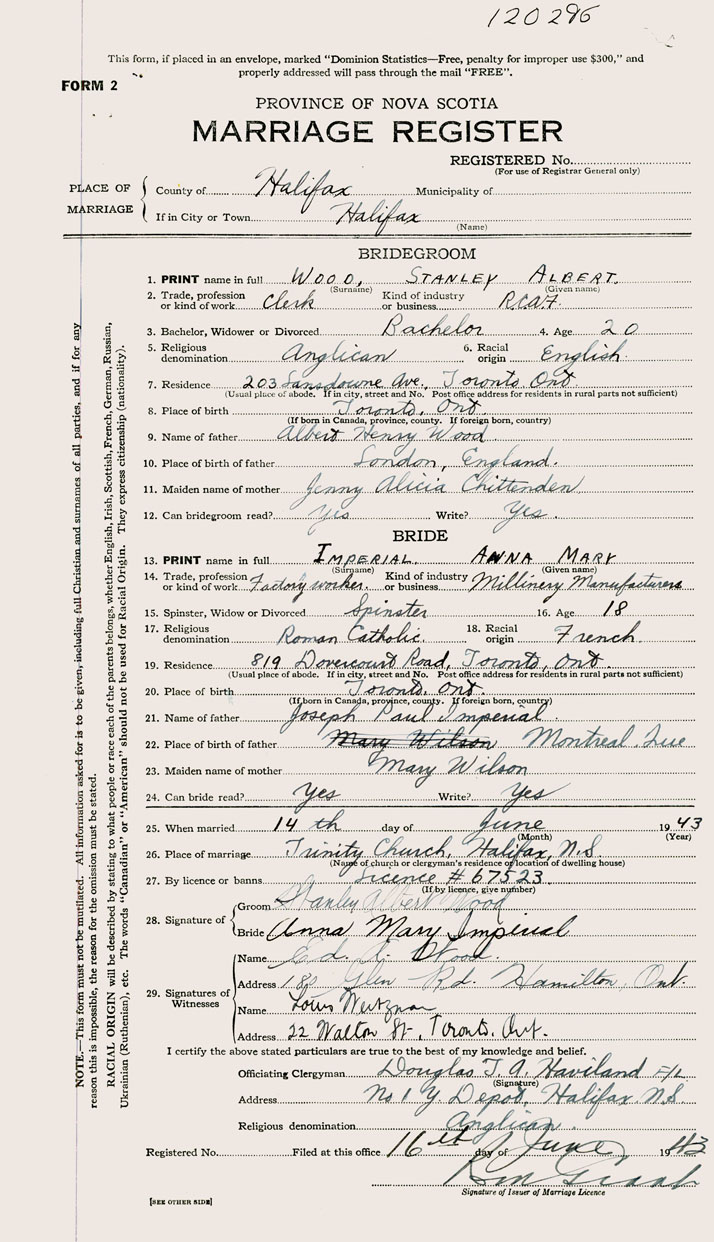 120296
This form, if placed in an envelope, marked "Dominion Statistics—Free, penalty for improper use $300," and
properly addressed will pass through the mail "FREE".
FORM 2
PROVINCE OF NOVA SCOTIA
MARRIAGE REGISTER
REGISTERED No.
(For use of Registrar General only)
PLACE OF MARRIAGE
County of Halifax Municipality of
If in City or Town Halifax
(Name)
BRIDEGROOM
1. PRINT name in full WOOD, STANLEY ALBERT.
(Surname) (Given name)
2. Trade, profession or kind of work Clerk Kind of industry or business R.C.A.F.
3. Bachelor, Widower or Divorced Bachelor 4. Age 20
5. Religious denomination Anglican 6. Racial origin English.
7. Residence 203 Lansdowne Ave., Toronto, Ont.
(Usual place of abode. If in city, street and No. Post office address for residents in rural parts not sufficient)
8. Place of birth Toronto, Ont.
(If born in Canada, province, county. If foreign born, country)
9. Name of father Albert Henry Wood
10. Place of birth of father London, England.
11. Maiden name of mother Jenny Alicia Chittenden
12. Can bridegroom read? Yes Write? Yes.
BRIDE
13. PRINT name in full IMPERIAL. ANNA MARY
(Surname) (Given name)
14. Trade, profession or kind of work Factory worker. Kind of industry or business Millinery Manufacturers
15. Spinster, Widow or Divorced Spinster 16. Age 18
17. Religious denomination Roman Catholic. 18. Racial origin French
19. Residence 819 Dovercourt Road, Toronto, Ont.
(Usual place of abode. If in city, street and No. Post office address for residents in rural parts not sufficient)
20. Place of birth Toronto, Ont.
(If born in Canada, province, county. If foreign born, country)
21. Name of father Joseph Paul Imperial.
22. Place of birth of father Mary Wilson Montreal, Que
23. Maiden name of mother Mary Wilson
24. Can bride read? Yes Write? Yes
25. When married 14 th day of June 1943
(Month) (Year)
26. Place of marriage Trinity Church, Halifax, N.S.
(Name of church or clergyman's residence or location of dwelling house)
27. By licence or banns Licence # 67523
(If by licence, give number)
28. Signature of
Groom Stanley Albert Wood
Bride Anna Mary Imperial
29. Signatures of Witnesses
Name Ed. A. Wood.
Address Glen Rd. Hamilton, Ont.
Name Louis
Address 22 Walton St., Toronto, Ont.
I certify the above stated particulars are true to the best of my knowledge and belief.
Officiating Clergyman Douglas T. A. Haviland F/L
(Signature)
Address No 1 Y. Depot, Halifax, N.S.
Religious denomination Anglican.
Registered No. Filed at this office 16th day of June 1943
Signature of Issuer of Marriage Licence
[SEE OTHER SIDE]
NOTE.—This form must not be mutilated. All information asked for is to be given, including full Christian and surnames of all parties, and if for any
reason this is impossible, the reason for the omission must be stated.
RACIAL ORIGIN will be described by stating to what people or race each of the parents belongs, whether English, Irish, Scottish, French, German, Russian,
Ukrainian (Ruthenian), etc. The words "Canadian" or "American" should not be used for Racial Origin. They express citizenship (nationality).